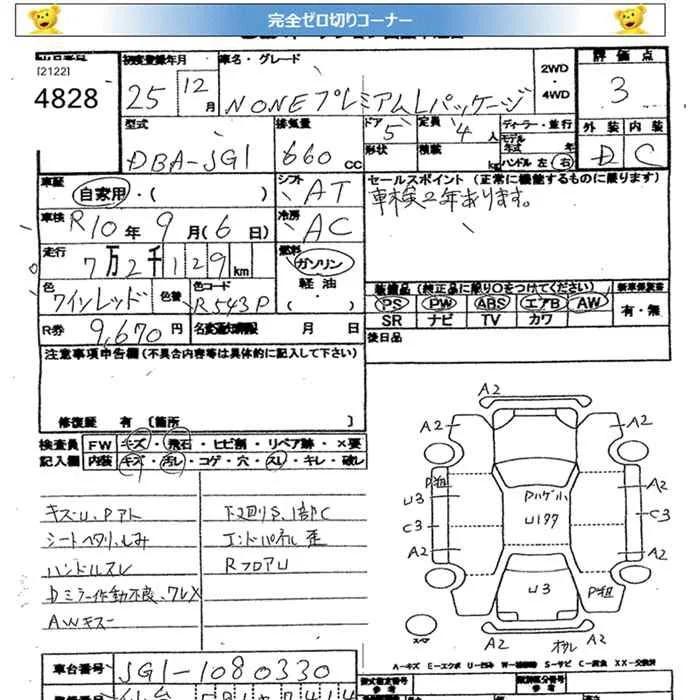 完全ゼロ切りコーナー
[2122]
4828
初度登録年月
25 12月
車名・グレード
NONEプレミアムLパッケージ
2WD
・
4WD
評価点
3
外装 内装
D C
型式
DBA-JG1
排気量
660 cc
ドア 5
定員 4人
形状
積載 kg
ディーラー・並行
モデル年式 年
ハンドル 左 右
車歴
自家用・( )
シフト
AT
セールスポイント (正常に機能するものに限ります)
車検2年あります。
車検
R10年9月(6日)
冷房
AC
走行
7万2千129km
燃料
ガソリン
軽油
・
( )
色
ワインレッド
色替
色コード
R543P
R券
9,670円
名変通知期限 月 日
装備品 (純正品に限り○をつけてください)
PS PW ABS エアB AW
SR ナビ TV カワ
新車保証書
有・無
後日品
注意事項申告欄(不具合内容等は具体的に記入して下さい)
修復歴 有 〔箇所 〕
検査員
記入欄
FW キズ・飛石・ヒビ割・リペア跡・×要
内装 キズ・汚レ・コゲ・穴・スレ・キレ・破レ
キズU、Pアト
シートヘタリ、しみ
ハンドルスレ
Dミラー作動不良、ワレX
AWキズー
下廻りS、1部C
エンドパネル歪
RフロアU
A2
A2
A2
P粗
A2
U3
A2
C3
C3
A2
A2
Pハゲ小
U177
U3
P粗
A2
A2
スペア
A-キズ E-エクボ U-凹み W-補修跡 S-サビ C-腐食 XX-交換済
車台番号
JG1-1080330
型式指定番号
参考
類別区分番号
参考